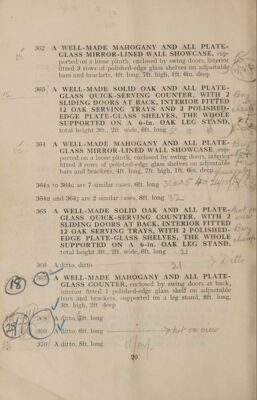 362 A WELL-MADE MAHOGANY AND ALL PLATE-
GLASS MIRROR-LINED WALL SHOWCASE, sup-
ported on a loose plinth, enclosed by swing doors, interior
fitted 3 rows of polished-edge glass shelves on adjustable
bars and brackets, 4ft. long, 7ft. high, 1ft. 6in. deep
363 A WELL-MADE SOLID OAK AND ALL PLATE-
GLASS QUICK-SERVING COUNTER, WITH 2
SLIDING DOORS AT BACK, INTERIOR FITTED
12 OAK SERVING TRAYS AND 2 POLISHED-
EDGE PLATE-GLASS SHELVES, THE WHOLE
SUPPORTED ON A 6-in. OAK LEG STAND,
total height 3ft., 2ft. wide, 6ft. long
364 A WELL-MADE MAHOGANY AND ALL PLATE-
GLASS MIRROR-LINED WALL SHOWCASE, sup-
ported on a loose plinth, enclosed by swing doors, interior
fitted 3 rows of polished-edge glass shelves on adjustable
bars and brackets, 4ft. long, 7ft. high, 1ft. 6in. deep
are 7 similar cases, 6ft. long
are 2 similar cases, 8ft. long 32
365 A WELL-MADE SOLID OAK AND ALL PLATE-
GLASS QUICK-SERVING COUNTER, WITH 2
SLIDING DOORS AT BACK, INTERIOR FITTED
12 OAK SERVING TRAYS, WITH 2 POLISHED-
EDGE PLATE-GLASS SHELVES, THE WHOLE
SUPPORTED ON A 6-in. OAK LEG STAND,
total height 3ft., 2ft. wide, 6ft. long 21
366 A ditto, ditto 21 Ditto
A WELL-MADE MAHOGANY AND ALL PLATE-
GLASS COUNTER, enclosed by swing doors at back,
interior fitted 1 polished-edge glass shelf on adjustable
bars and brackets, supported on a leg stand, 8ft. long,
3ft. high, 2ft. deep
18
368 A ditto, 6ft. long
369 A ditto, 6ft. long not on view
370 A ditto, 5ft. long
20